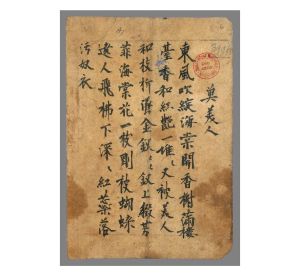 奠美人
東風吹綻海棠開香榭滿樓
臺香和紅艷一堆〻又被美人
和枝折墜金釵〻〻釵上綴芳
菲海棠花一枝剛被蝴蝶
遶人飛拂下深〻紅蕊落
污奴衣